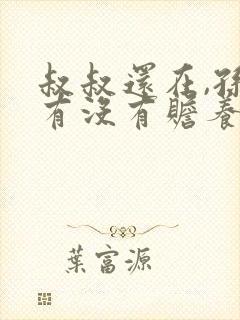 叔叔還在,孫
有沒有贍養
葉富源